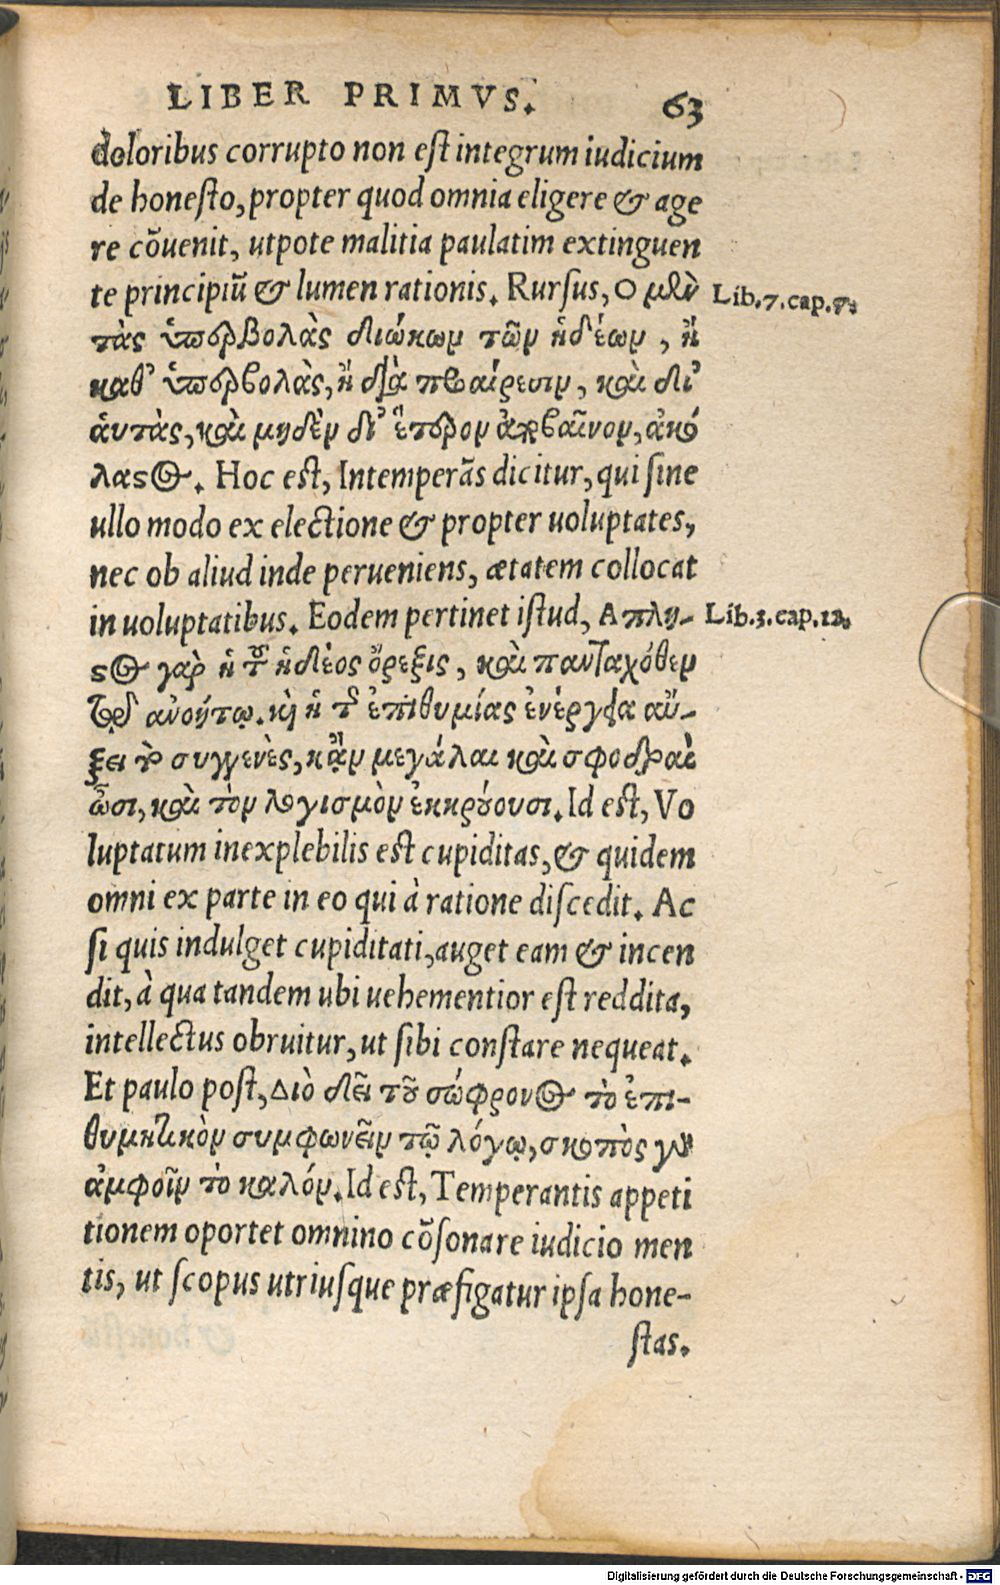 LIBER PRIMVS. 63
doloribus corrupto non est integrum iudicium
de honesto, propter quod omnia eligere & age
re cōuenit, utpote malitia paulatim extinguen
te principiū & lumen rationis. Rursus, Ο μὲν Lib.7.cap.7.
τὰς ὑπερβολὰς διώκων τῶν ἡδέων, ἢ
καθ’ ὑπερβολὰς, ἢ διὰ προαίρεσιν, καὶ δι’
ἁυτὰς, καὶ μηδὲν δι’ ἕτερον ἀποβαῖνον, ἀκό
λαστος. Hoc est, Intemperās dicitur, qui sine
ullo modo ex electione & propter uoluptates,
nec ob aliud inde perueniens, ætatem collocat
in uoluptatibus. Eodem pertinet istud, Απλη- Lib.3.cap.12.
στος γὰρ ἡ τοῦ ἡδέος ὄρεξις, καὶ πανταχόθεν
τῷ ἀνοήτῳ. κὶ ἡ τῆς ἐπιθυμίας ἐνέργεια αὔ-
ξει τὸ συγγενὲς, κᾂν μεγάλαι καὶ σφοδραὶ
ὦσι, καὶ τὸν λογισμὸν ἐκκρούουσι. Id est, Vo
luptatum inexplebilis est cupiditas, & quidem
omni ex parte in eo qui à ratione discedit. Ac
si quis indulget cupiditati, auget eam & incen
dit, à qua tandem ubi uehementior est reddita,
intellectus obruitur, ut sibi constare nequeat.
Et paulo post, Διὸ δεῖ τοῦ σώφρονος τὸ ἐπι-
θυμητικὸν συμφωνεῖν τῷ λόγῳ, σκοπὸς γὰρ
ἀμφοῖν τὸ καλόν. Id est, Temperantis appeti
tionem oportet omnino cōsonare iudicio men
tis, ut scopus utriusque præfigatur ipsa hone-
stas.
Digitalisierung gefördert durch die Deutsche Forschungsgemeinschaft - DFG